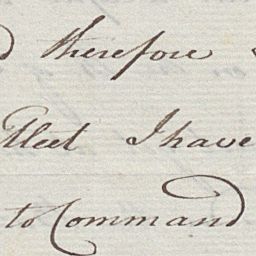 therefore
Fleet I have
to Command